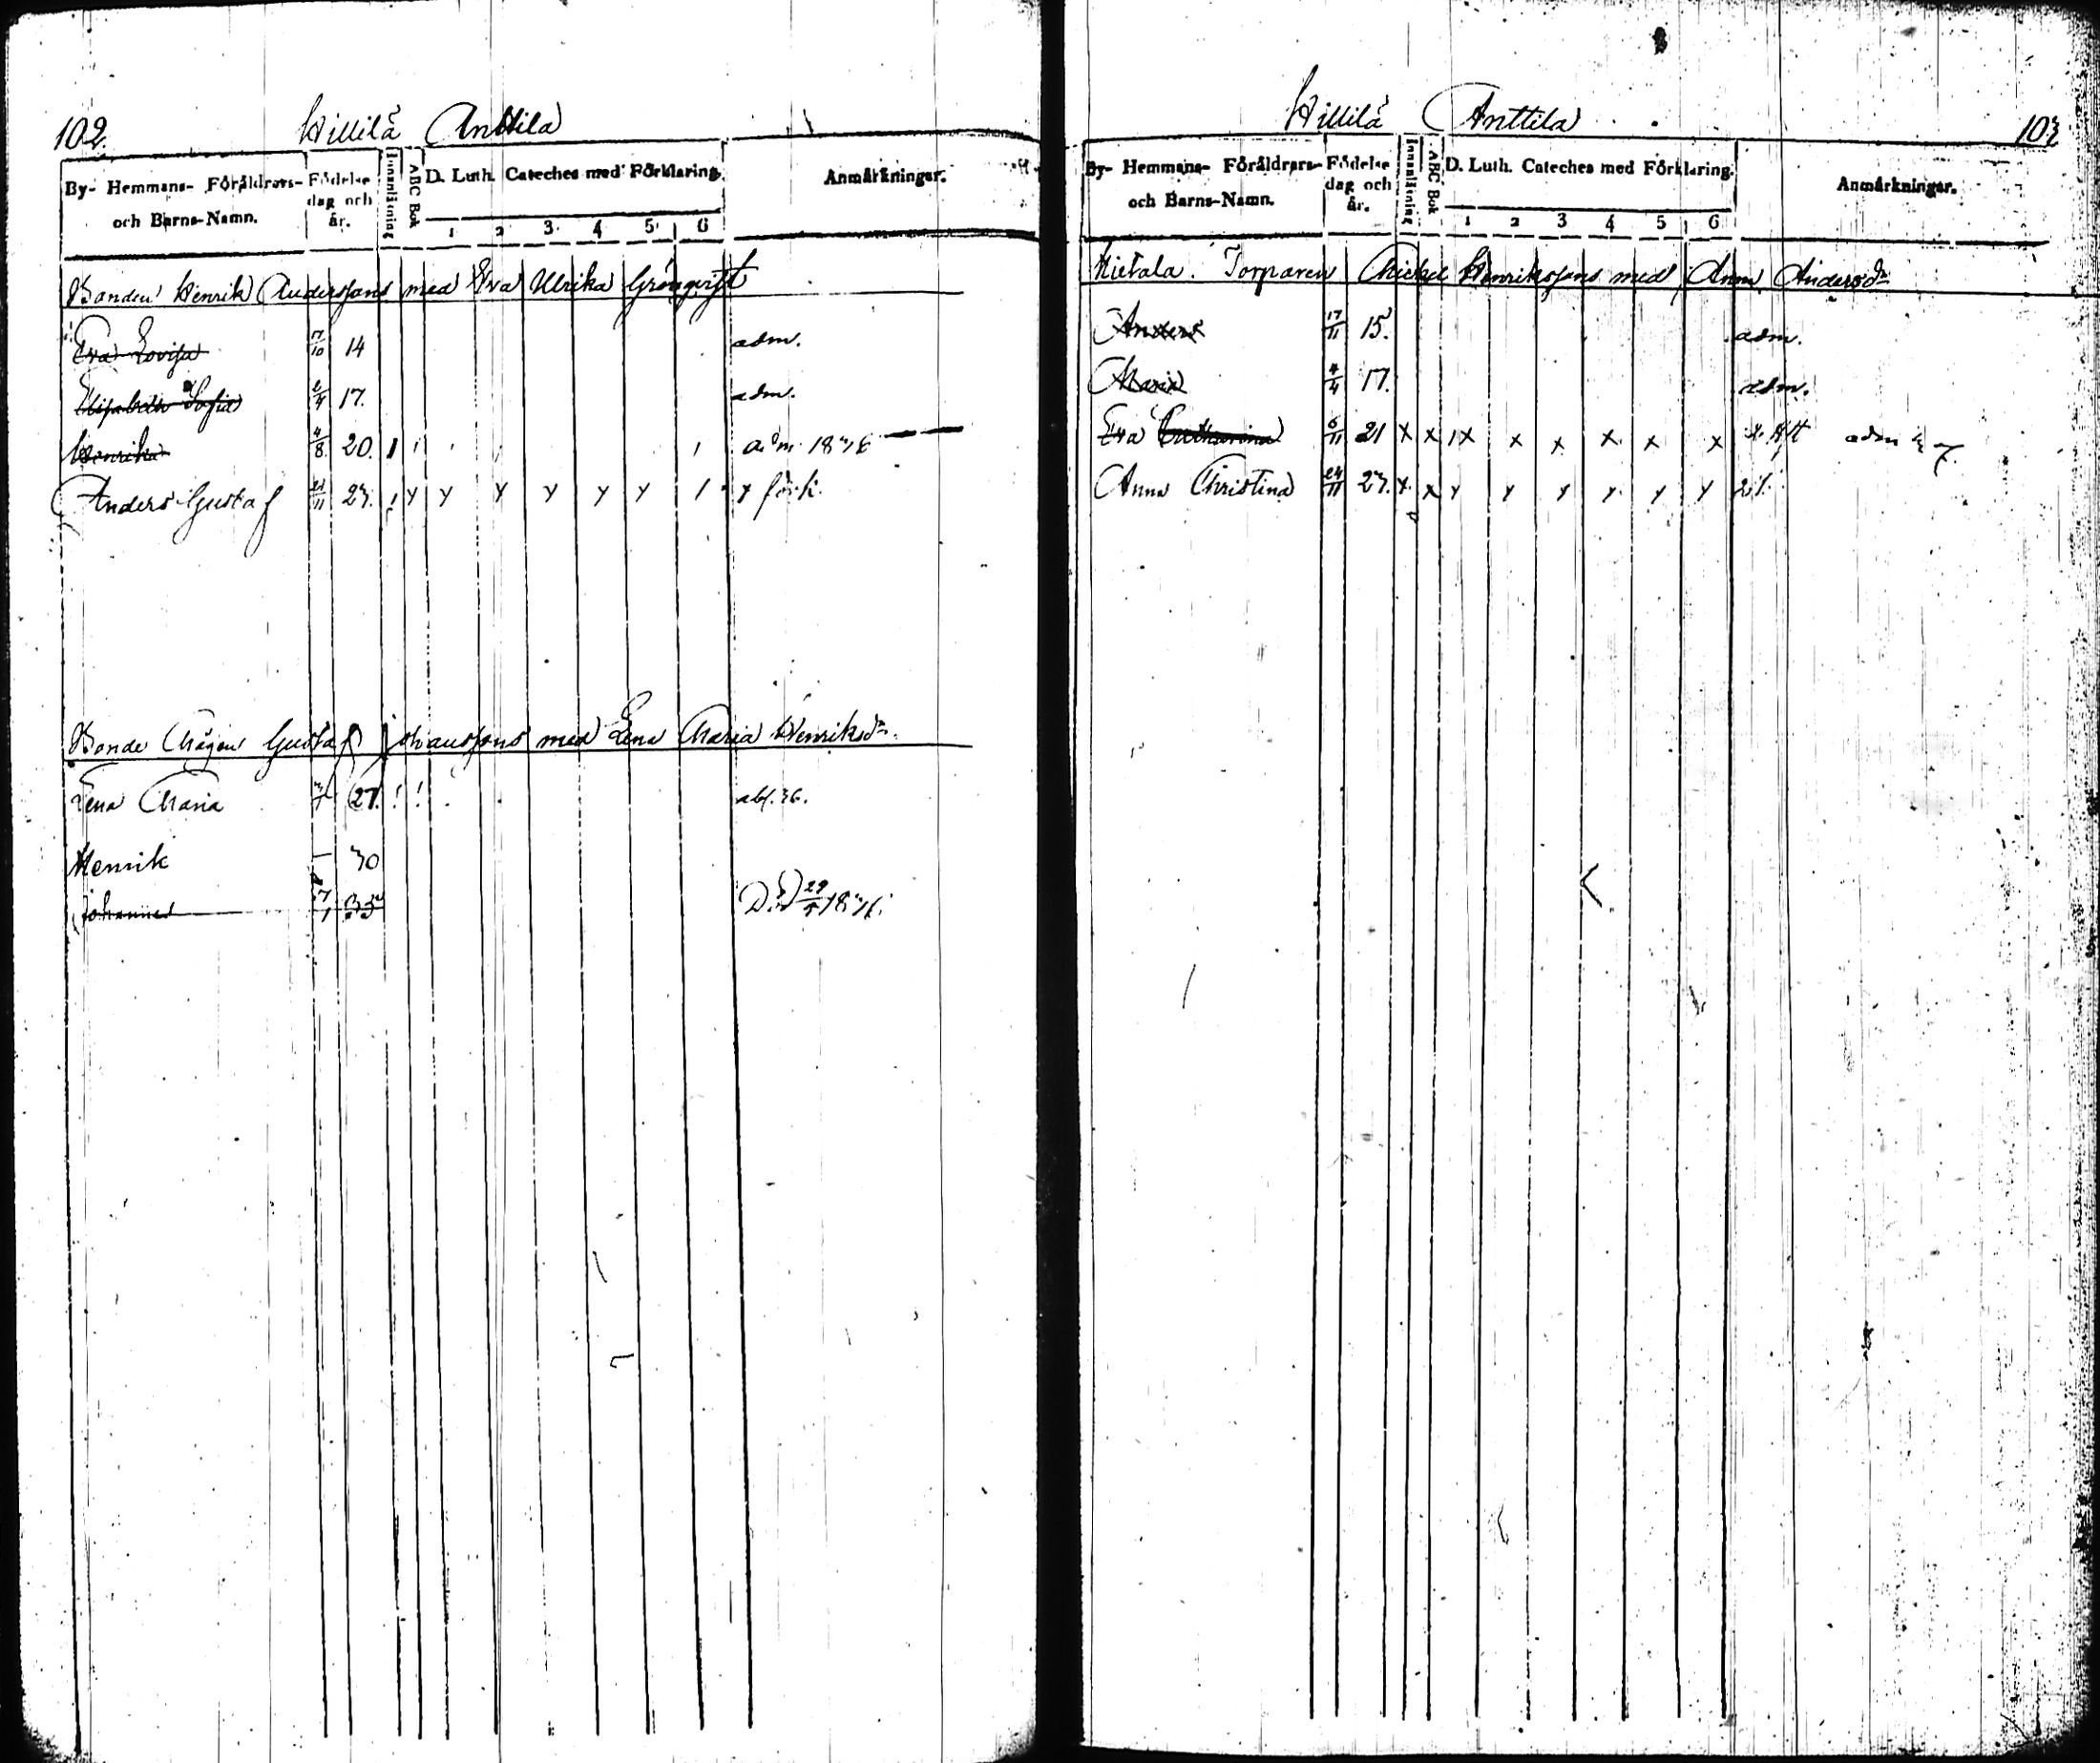 102.
Hillilä Anttila
By- Hemmans- Föräldrars- och Barns-Namn. Födelse dag och år. Innanläsning ABC Bok D. Luth. Cateches med Förklaring. Anmärkningar.
1 2 3 4 5 6
Bonden Henrik Anderssons med Eva Ulrika Grönqvist
Eva Lovisa 17/10 14 adm.
Elisabeth Sofia 2/4 17. adm.
Henrika 4/8 20. adm 1836
Anders Gustaf 21/11 23. y y y y y y förk.
Bonde Mågen Gustaf Johanssons med Lena Maria Henriksdr.
Lena Maria 27. abs. 36.
Henrik — 30
Johannes 7/1 35 Död 29/5 1836
103
Hillilä Anttila
By- Hemmans- Föräldrars- och Barns-Namn. Födelse dag och år. Innanläsning ABC Bok D. Luth. Cateches med Förklaring. Anmärkningar.
1 2 3 4 5 6
Hietala. Torparen Mickel Henrikssons med Anna Andersdr
Anders 17/11 15. adm.
Maria 4/4 17. adm.
Eva Catharina 6/11 21 x x x x x x x x adm
Anna Christina 24/11 23. x x y y y y y y